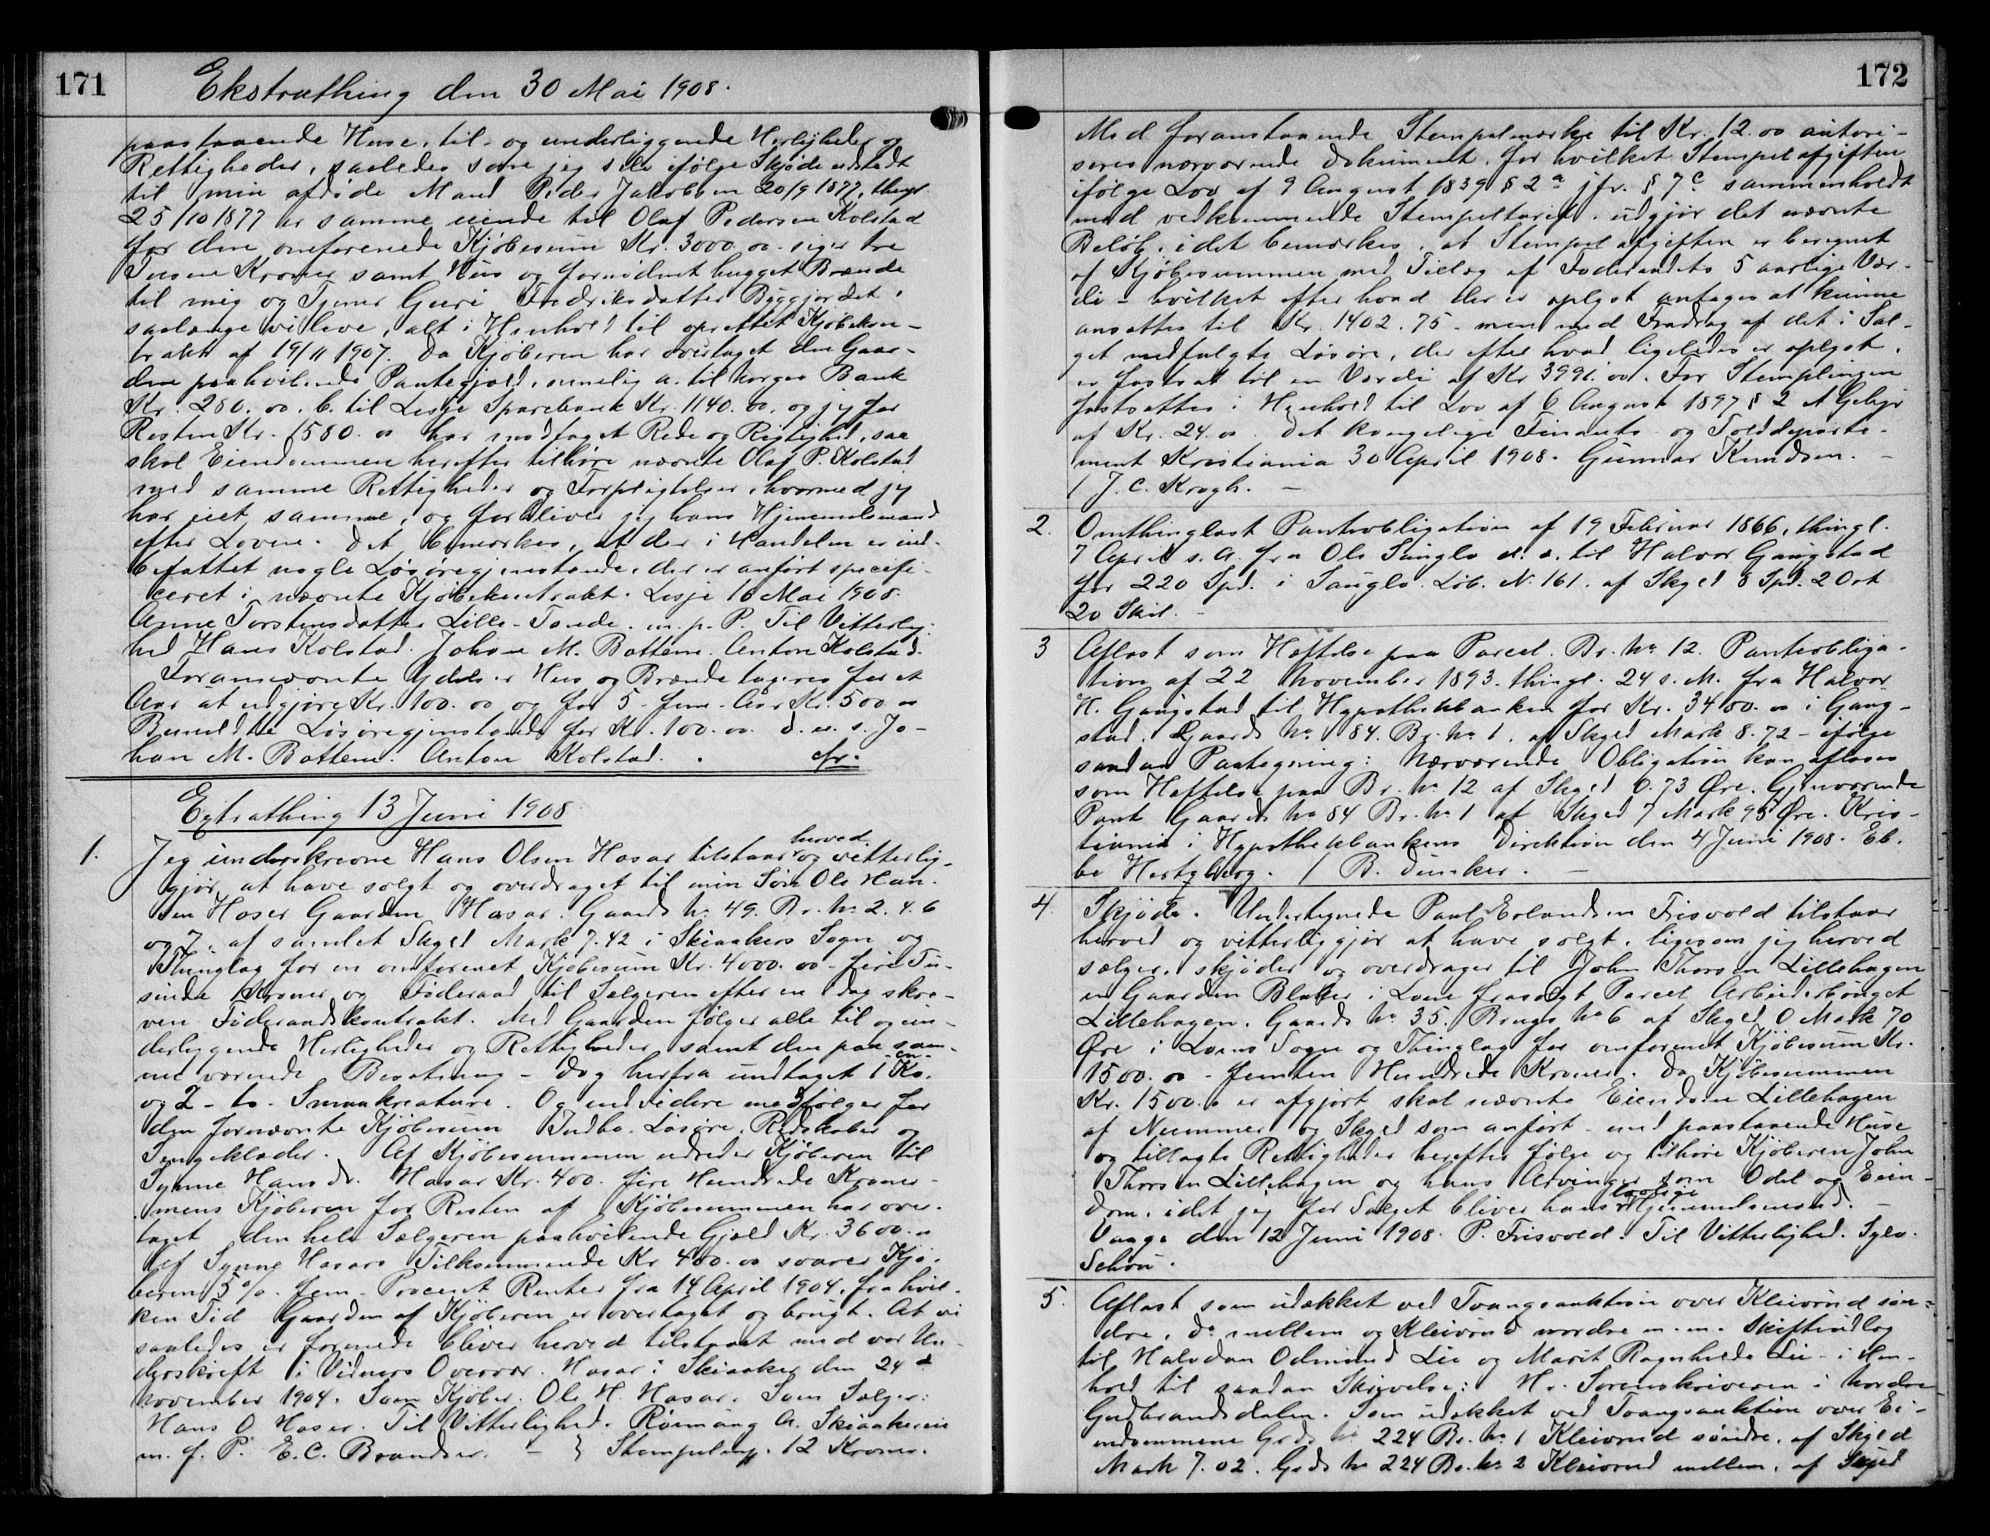 171
Ekstrathing den 30 Mai 1908.
paastaaende Huse, til- og underliggende Herligheder og
Rettigheder, saaledes som jeg selv ifølge Skjøde udstedt
til min afdøde Mand Peder Jakobsen 20/9 1877, thingl.
25/10 1877 er samme eiende til Olaf Pedersen Kolstad
for den omforenede Kjøbesum Kr. 3000.00 siger tre
Tusene Kroner samt Hus og fornødent hugget Brænde
til mig og Guri Fredriksdatter Byggjordet.
saalænge vi leve, alt i Henhold til oprettet Kjøbekon-
trakt af 19/11 1907. Da Kjøberen har overtaget den Gaar-
den paahvilende Pantegjæld, nemlig a. til Norges Bank
Kr. 280.00. b. til Lesje Sparebank Kr. 1140.00, og jeg for
Resten Kr. 1580.00 har modtaget Rede og Rigtighed, saa
skal Eiendommen herefter tilhøre nævnte Olaf P. Kolstad
med samme Rettigheder og Forpligtelser, hvormed jeg
har eiet samme, og forbliver jeg hans Hjemmelsmand
efter Loven. Det bemærkes, at der i Handelen er ind-
befattet nogle Løsøregjenstande, der er anført specifi-
ceret i nævnte Kjøbekontrakt. Lesje 16 Mai 1908.
Anne Torstensdatter Lille-Tande. m. p. P. Til Vitterlig-
hed Hans Kolstad. Johan M. Bottem. Anton Kolstad.
Forannævnte Ydelser Hus og Brænde tageres for et
Aar at udgjøre Kr. 100.00 og for 5 fem Aar Kr. 500.00
Løsøregjenstande for Kr. 100.00. d. u. s. Jo-
han M. Bottem. Anton Kolstad.
Extrathing 13 Juni 1908
1. Jeg underskrevne Hans Olsen Hosar tilstaar herved og vitterlig-
gjør at have solgt og overdraget til min Søn Ole Han-
sen Hoser Gaarden Hosar. Gaards No 49. Br. No 2. 4. 6
og 7. af samlet Skyld Mark 7.42 i Skiaakers Sogn og
Thinglag for en omforenet Kjøbesum Kr. 4000.00 - fire Tu-
sinde Kroner og Føderaad til Sælgeren efter en idag skre-
ven Føderaadskontrakt. Med Gaarden følger alle til og un-
derliggende Herligheder og Rettigheder samt den paa sam-
me værende Besætning - dog herfra undtaget 1 -en- Ko.
og 2 - to - Smaakreature. Og endvidere medfølger for
den fornævnte Kjøbesum Indbo, Løsøre, Redskaber og
Sengeklæder. Af Kjøbesummen udreder Kjøberen til
Synne Hansdr. Hosar Kr. 400. fire Hundrede Kroner -
mens Kjøberen for Resten af Kjøbesummen har over-
taget den hele Sælgeren paahvilende Gjæld Kr. 3600.00
Af Synne Hosars Tilkommende Kr 400.00 svarer Kjø-
beren 5% fem Procent Renter fra 14 April 1904, fra hvil-
ken Tid Gaarden af Kjøberen er overtaget og brugt. At vi
saaledes er forenede bliver herved tilstaaet med vor Un-
derskrift i Vidners Overvær. Hosar i Skiaaker den 24d
November 1904. Som Kjøber: Ole H. Hosar. Som Sælger:
Hans O Hoser. Til Vitterlighed. A. Skiaakeren
m. f. P. E. C. Brandser. - } Stempelmk. 12 Kroner.
172
Med foranstaaende Stempelmærke til Kr. 12.00 autori-
seres nærværende Dokument, for hvilket Stempelafgiften
ifølge Lov af 9 August 1839 § 2a jfr. § 7c sammenholdt
med vedkommende Stempeltarif, udgjør det nævnte
Beløb, idet bemærkes, at Stempelafgiften er beregnet
af Kjøbesummen med Tillæg af Føderaadets 5 aarlige Vær-
di - hvilket efter hvad der er oplyst antages at kunne
ansættes til Kr. 1402.75 - men med Fradrag af det i Sal-
get medfulgte Løsøre, der efter hvad ligeledes er oplyst,
er fastsat til en Værdi af Kr 3991.00. For Stemplingen
fastsættes i Henhold til Lov af 6 August 1897 § 2 et Gebyr
af Kr. 24.00. Det kongelige Finants- og Tolddeparte-
ment Kristiania 30 April 1908. Gunnar Knudsen. -
/ J. C. Krogh. -
2. Omthinglæst Pantobligation af 19 Februar 1866, thingl.
7 April s. A. fra Ole Sunglo d. æ. til Halvor Gangstad
for 220 Spd. i Løb. N. 161. af Skyld 8 Spd. 2 Ort
20 Skil. -
3 Aflæst som Heftelse paa Parcel Br. No 12. Pantobliga-
tion af 22 November 1893. thingl. 24 s. M. fra Halvor
H. Gangstad til Hypothekbanken for Kr. 3400.00 i Gang-
stad. Gaards No 84. Br. No 1. af Skyld Mark 8.72 - ifølge
saadan Paategning: Nærværende Obligation kan aflæses
som Heftelse paa Br. No 12 af Skyld 0.73 Øre. Gjenværende
Pant Gaards No 84 Br. No 1 af Skyld 7 Mark 95 Øre. Kris-
tiania i Hypothekbankens Direktion den 4 Juni 1908. Eb-
be Hertzberg. / B. Dunker. -
4. Skjøde. Undertegnede Paul Erlandsen Frisvold tilstaar
herved og vitterliggjør at have solgt, ligesom jeg herved
sælger, skjøder og overdrager til John Thorsen Lillehagen
en Gaarden Blaker i Lom frasolgt Parcel Arbeiderbruget
Lillehagen. Gaards No 35. Brugs No 6 af Skyld 0 Mark 70
Øre i Loms Sogn og Thinglag for omforenet Kjøbesum Kr.
1500.00 - femten Hundrede Kroner. Da Kjøbesummen
Kr. 1500.- er afgjort skal nævnte Eiendom Lillehagen
af Nummer og Skyld som anført - med paastaaende Huse
og tillagte Rettigheder herefter følge og tilhøre Kjøberen John
Thorsen Lillehagen og hans Arvinger som Odel og Eien-
dom, idet jeg for Salget bliver hans lovlige Hjemmelsmand. -
Vaage den 12 Juni 1908. P. Frisvold. Til Vitterlighed. Sylv.
Schou.
5. Aflæst som udækket ved Tvangsauktion over Kleivrud søn-
dre, do mellem og Kleivrud nordre m. m. Skifteudlæg
til Halvdan Odmund Lie og Marit Ragnhilde Lie - i Hen-
hold til saadan Skrivelse: Hr. Sorenskriveren i Nordre
Gudbrandsdalen. Som udækket ved Tvangsauktion over Ei-
endommene Grds No 224 Br. No 1 Kleivrud søndre, af Skyld
Mark 7.02. Grds No 224 Br. No 2 Kleivrud mellem, af Skyld